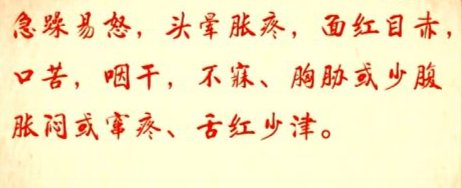 急躁易怒，头晕胀疼，面红目赤，
口苦，咽干，不寐、胸胁或少腹
胀闷或窜疼、舌红少津。